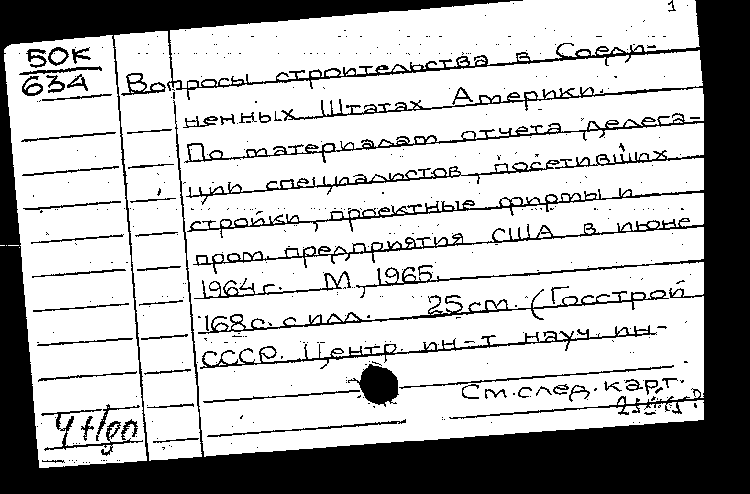 1
БОК
634
Вопросы строительства в Соеди-
ненных Штатах Америки.
По материалам отчета делега-
ции специалистов, посетивших
стройки, проектные фирмы и
пром. предприятия США в июне
1964 г. М, 1965.
168 с. с илл. 25 см. (Госстрой
СССР. Центр. ин-т науч. ин-
См. след. карт.